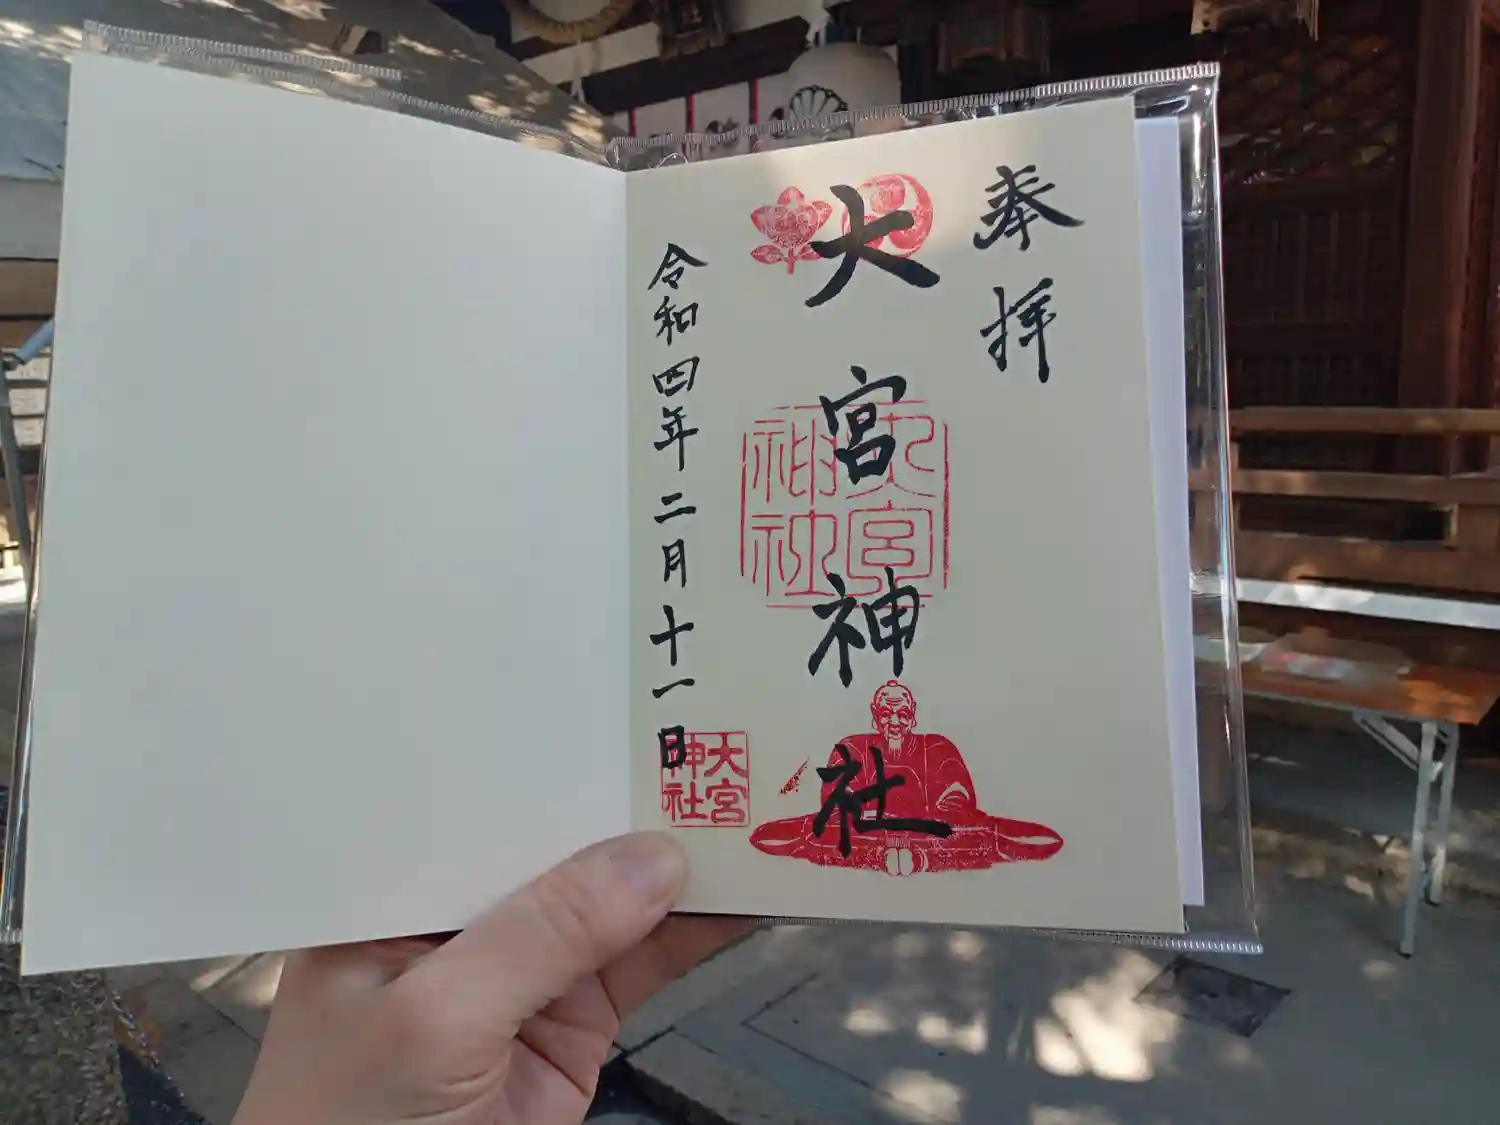 奉拝
大宮神社
大宮神社
令和四年二月十一日
大宮神社